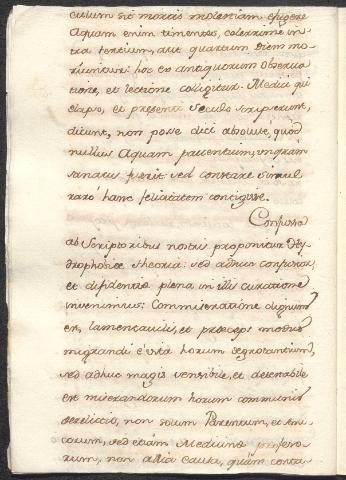 culum sit mortis molestiam effugere
Aquam enim timentes, celerrime in-
tra tertium, aut quartum Diem mo-
riuntur: hoc ex antiquorum observa-
tione, et lectione colligitur. Medici qui
elapso, et presenti seculo scripserunt,
dicunt, non posse dici absolute, quod
nullus Aquam paventium, unquam
sanatus fuerit sed constare simul
raro hanc felicitatem contigisse.
Confusa
ab Scriptoribus nostris proponitur Hy-
drophobiæ theoria: sed adhuc confusior,
et difidentiæ plena, in illis curatione
invenimus: Commiseratione dignum
est, lamentabilis, et præceps modus
migrandi è vita horum ægrotantium,
sed adhuc magis sensibile, et detestabile
est miserandorum horum communis
derelictio, non solum Parentum, et Ami-
corum, sed etiam Medicinæ professo-
rum, non alia causa, quàm conta-